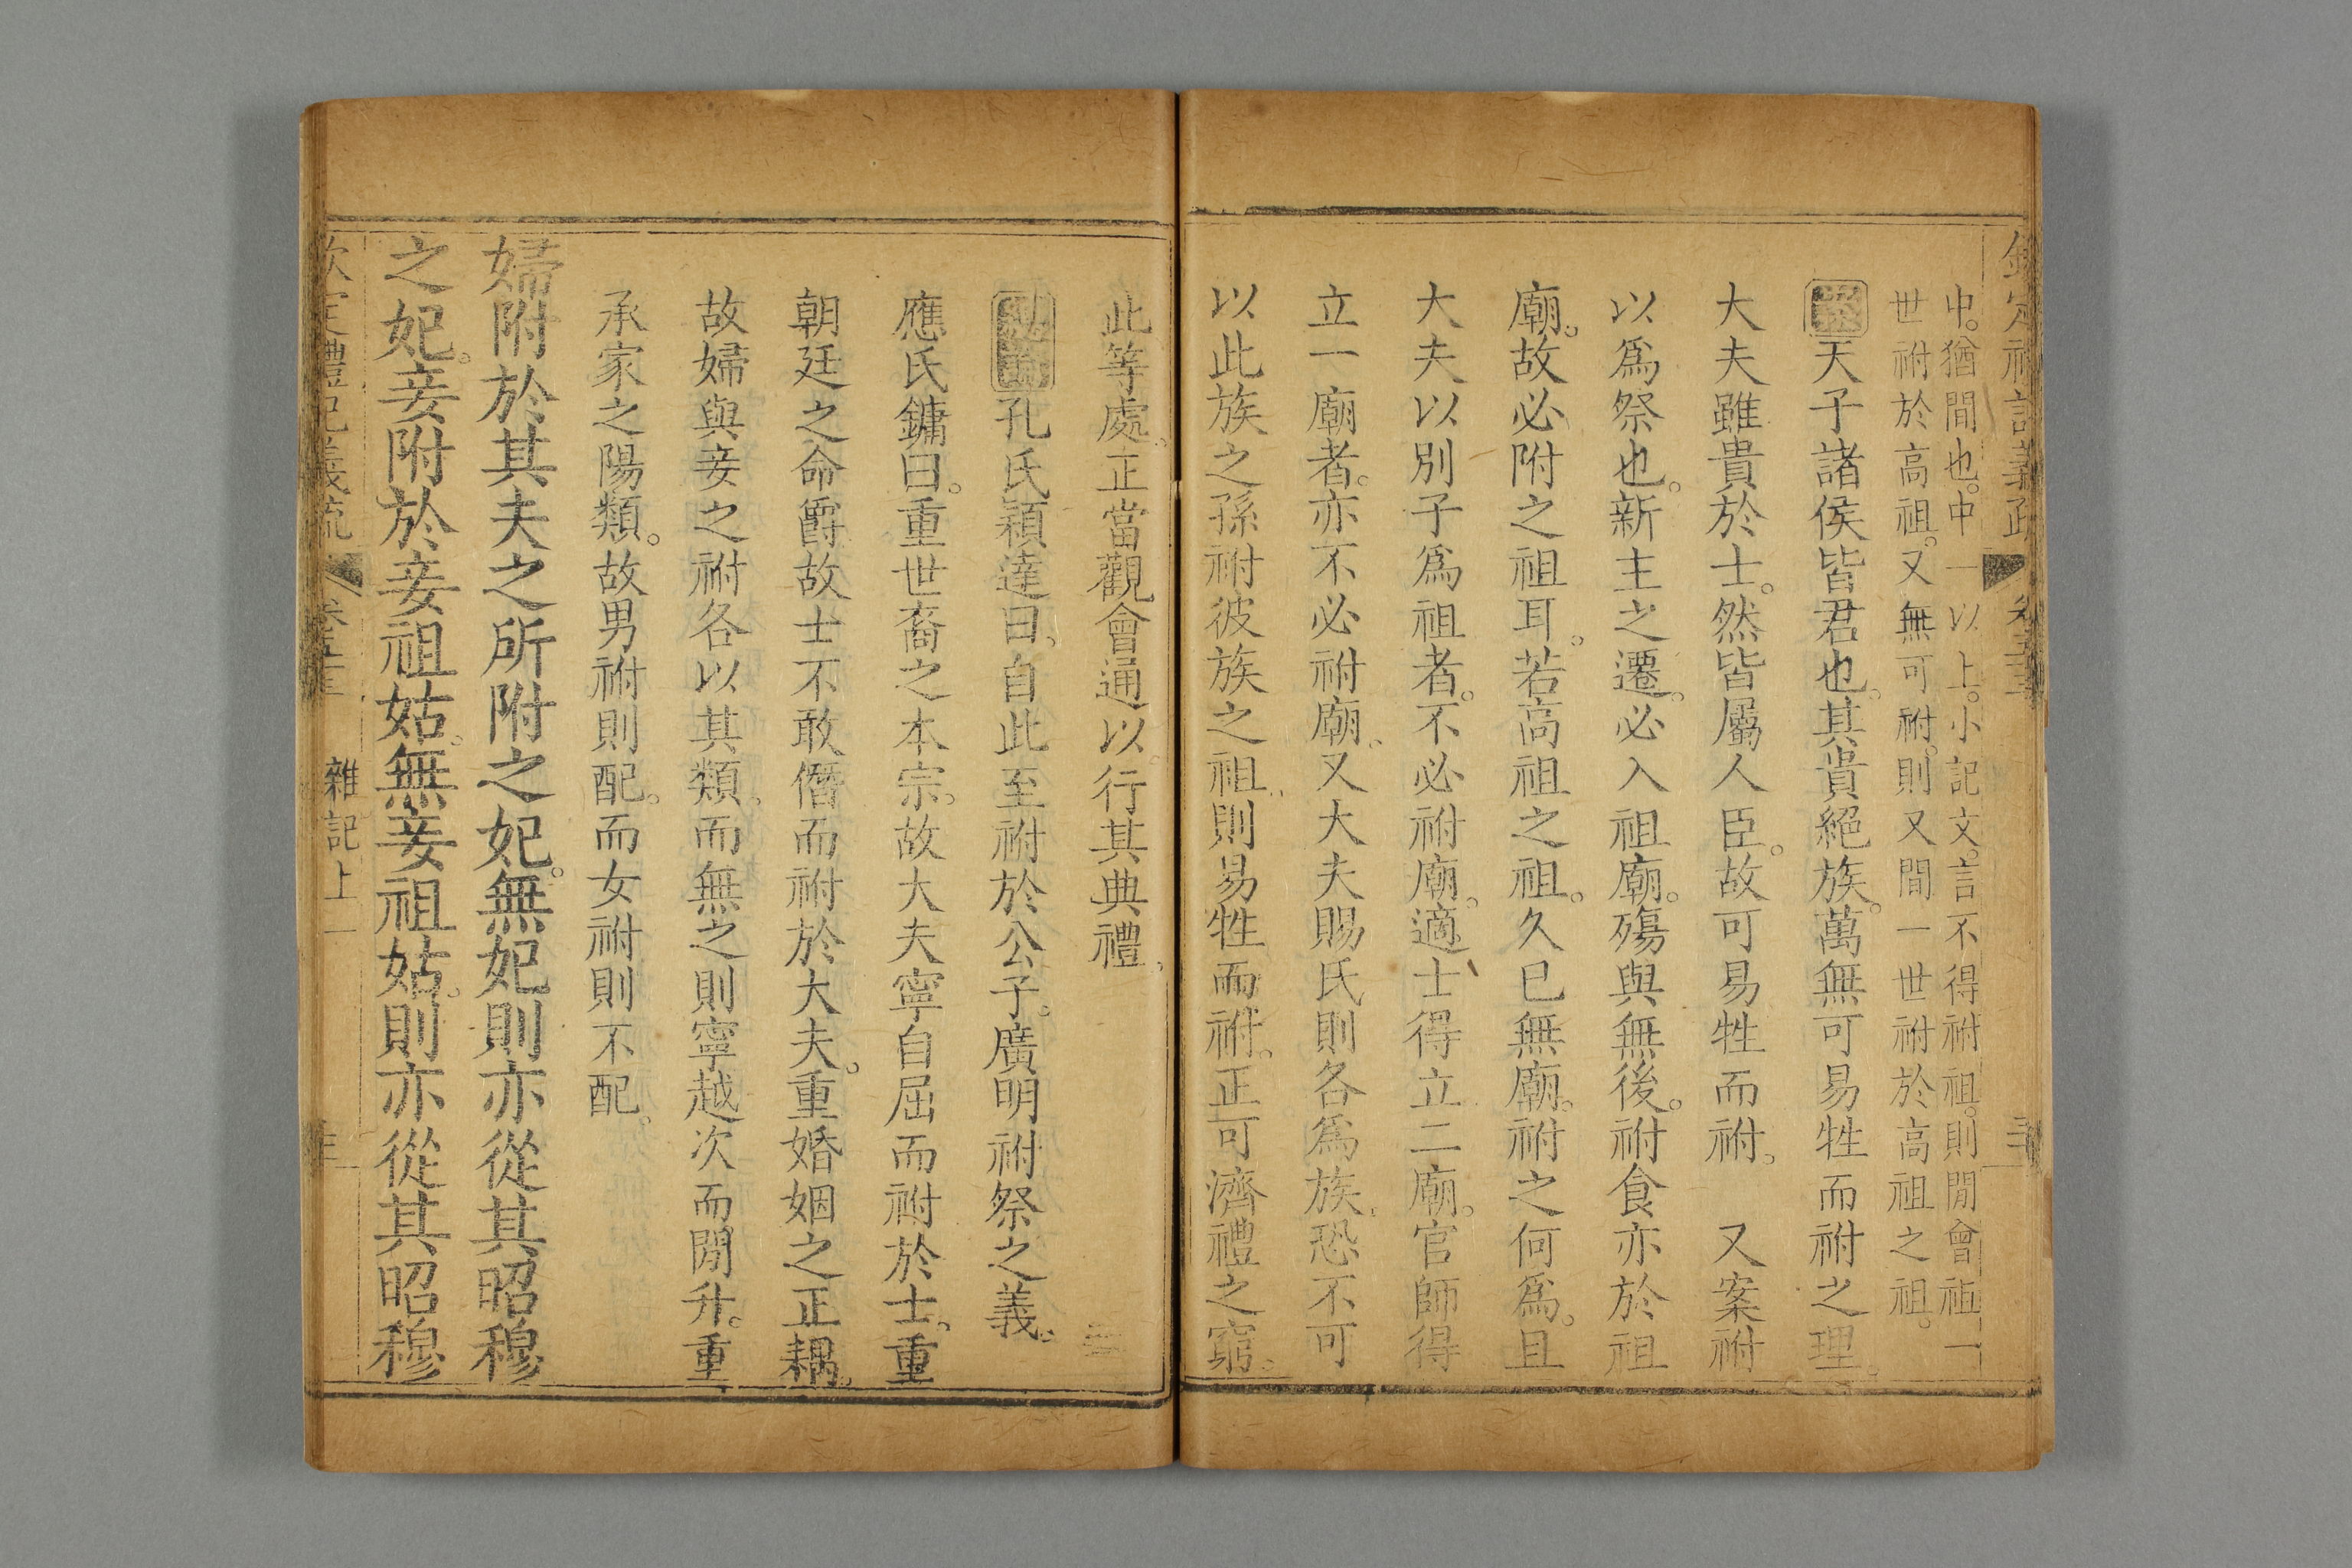 中。猶間也。中一以上。小記文。言不得祔祖。則閒曾祖一
世祔於高祖。又無可祔。則又間一世祔於高祖之祖。
案天子諸侯皆君也。其貴絕族。萬無可易牲而祔之理。
大夫雖貴於士。然皆屬人臣。故可易牲而祔。 又案祔
以爲祭也。新主之遷。必入祖廟。殤與無後。祔食亦於祖
廟。故必附之祖耳。若高祖之祖。久已無廟。祔之何爲。且
大夫以別子爲祖者。不必祔廟。適士得立二廟。官師得
立一廟者。亦不必祔廟。又大夫賜氏則各爲族。恐不可
以此族之孫祔彼族之祖。則易牲而祔。正可濟禮之窮。
此等處。正當觀會通以行其典禮。
孔氏穎達曰。自此至祔於公子。廣明祔祭之義。
應氏鏞曰。重世裔之本宗。故大夫寧自屈而祔於士。重
朝廷之命爵故士不敢僭而祔於大夫。重婚姻之正耦。
故婦與妾之祔各以其類。而無之則寧越次而閒升。重
承家之陽類。故男祔則配。而女祔則不配。
婦附於其夫之所附之妃。無妃則亦從其昭穆
之妃。妾附於妾祖姑。無妾祖姑。則亦從其昭穆
欽定禮記義疏 雜記上